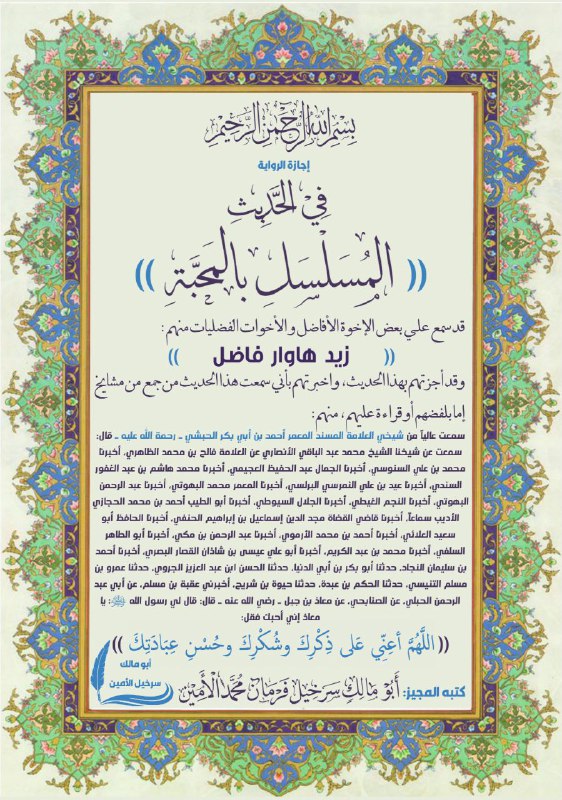 بِسْمِ اللَّهِ الرَّحْمَٰنِ الرَّحِيمِ
اجازة الرواية
فِي الحَدِيثِ
(( المُسَلْسَلِ بِالمَحَبَّةِ ))
قد سمع علي بعض الإخوة الأفاضل والأخوات الفضليات منهم:
(( زيد هاوار فاضل ))
وقد أجزتهم بهذا الحديث، واخبرتهم بأني سمعت هذا الحديث من جمع من مشايخ
إما بلفضهم أو قراءة عليهم، منهم:
سمعت عالياً من شيخي العلامة المسند المعمر أحمد بن أبي بكر الحبشي ـ رحمة الله عليه ـ قال:
سمعت عن شيخنا الشيخ محمد عبد الباقي الأنصاري عن العلامة فالح بن محمد الظاهري، أخبرنا
محمد بن علي السنوسي، أخبرنا الجمال عبد الحفيظ العجيمي، أخبرنا محمد هاشم بن عبد الغفور
السندي، أخبرنا عيد بن علي النمرسي البرلسي، أخبرنا المعمر محمد البهوتي، أخبرنا عبد الرحمن
البهوتي، أخبرنا النجم الغيطي، أخبرنا الجلال السيوطي، أخبرنا أبو الطيب أحمد بن محمد الحجازي
الأديب سماعاً، أخبرنا قاضي القضاة مجد الدين إسماعيل بن إبراهيم الحنفي، أخبرنا الحافظ أبو
سعيد العلائي، أخبرنا أحمد بن محمد الأرموي، أخبرنا عبد الرحمن بن مكي، أخبرنا أبو الطاهر
السلفي، أخبرنا محمد بن عبد الكريم، أخبرنا أبو علي عيسى بن شاذان القصار البصري، أخبرنا أحمد
بن سليمان النجاد، حدثنا أبو بكر بن أبي الدنيا، حدثنا الحسن ابن عبد العزيز الجروي، حدثنا عمرو بن
مسلم التنيسي، حدثنا الحكم بن عبدة، حدثنا حيوة بن شريح، أخبرني عقبة بن مسلم، عن أبي عبد
الرحمن الحبلي، عن الصنابحي، عن معاذ بن جبل ـ رضي الله عنه ـ قال: قال لي رسول الله ﷺ: يا
معاذ إني أحبك فقل:
(( اللَّهُمَّ أَعِنِّي عَلى ذِكْرِكَ وشُكْرِكَ وحُسْنِ عِبَادَتِكَ ))
كتبه المجيز: أَبُو مَالِكٍ سَرحِيل فَرمَان مُحَمَّد الأَمِين
أبو مالك
سرحيل الأمين